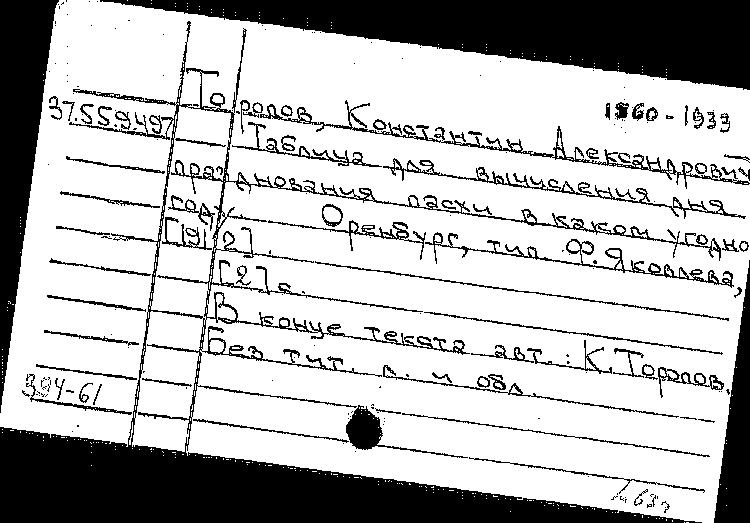 1860-1933
Торопов, Константин Александрович
37.55.9.497
Таблица для вычисления дня
празднования пасхи в каком угодно
году. Оренбург, тип. Ф. Яковлева,
[1912].
[2] с.
В конце текста авт.: К. Торопов.
Без тит. л. и обл.
394-61